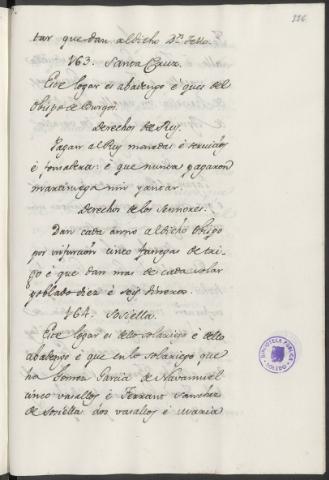 226
tar que dan al dicho Dn. Tello.
163. Santa Cruz.
Este logar es abadengo è ques del
Obispo de Burgos.
Derechos del Rey.
Pagan al Rey monedas è servicios
è fonsadera: è que nunca pagaron
martiniega nin yantar.
Derechos de los Sennores.
Dan cada anno al dicho Obispo
por infurcion cinco fanegas de tri-
go è que dan mas de cada solar
poblado diez è seis dineros.
164. Sosiella.
Este logar es dello solariego è dello
abadengo è que en lo solariego que
ha Gomez Garcia de Navamuel
cinco vasallos è Ferrant Sanchez
de Sosiella dos vasallos è Maria
BIBLIOTECA PUBLICA
TOLEDO